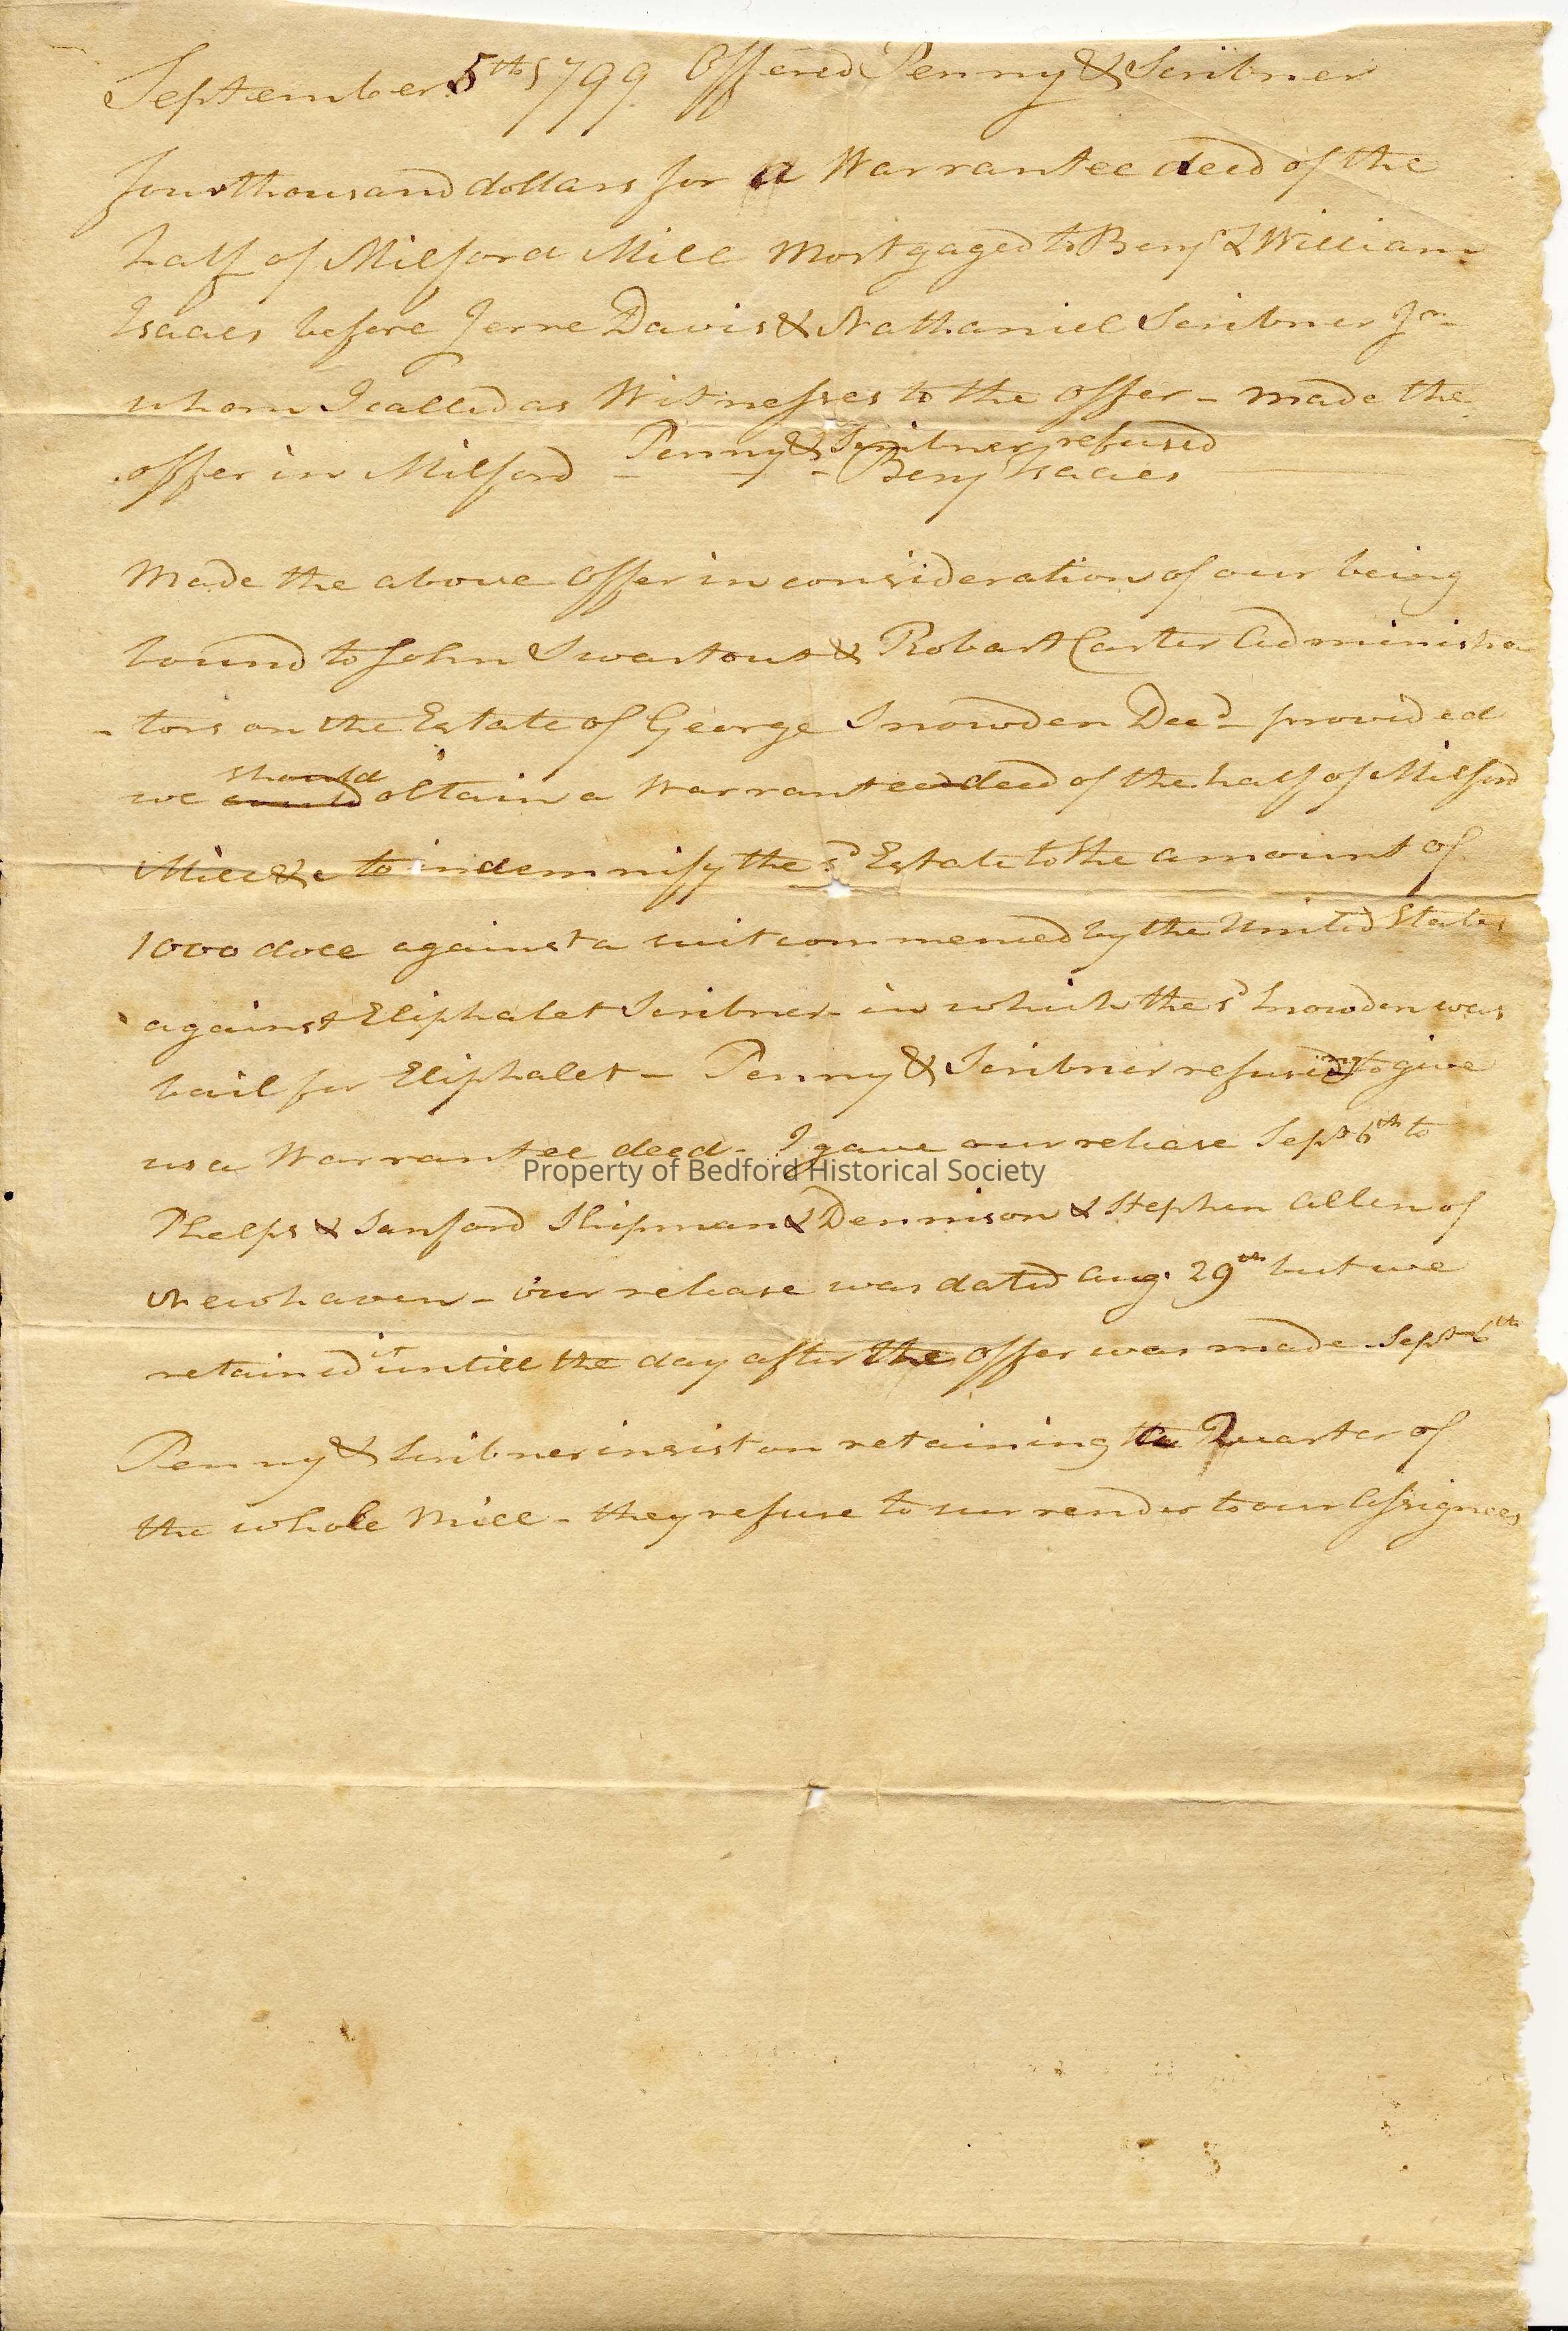 September 5th 1799 Offered Penny & Scribner
four thousand dollars for a Warrantee deed of the
half of Milford Mill Mortgaged to Benj & William
Isaacs before Jerre Davis & Nathaniel Scribner Jr
whom I called as Witnesses to the offer - made the
offer in Milford - Penny & Scribner refused
Benj Isaacs
Made the above Offer in consideration of our being
bound to John Swartout & Robart Carter Administra
- tors on the Estate of George Snowden Decd provided
we could should obtain a Warrantee deed of the half of Milford
Mill &c to indemnify the sd Estate to the amount of
1000 doll against a suit commenced by the United States
against Eliphalet Scribner in which the sd Snowden was
bail for Eliphalet - Penny & Scribner refusing to give
us a Warrantee deed - I gave our release Sept 6th to
Phelps & Sanford Shipman & Dennison & Stephen Allen of
Newhaven - our release was dated Aug. 29th but we
retained it untill the day after the offer was made Sept 6th
Penny & Scribner insist on retaining a Quarter of
the whole Mill - they refuse to surrender to our Assignees
Property of Bedford Historical Society